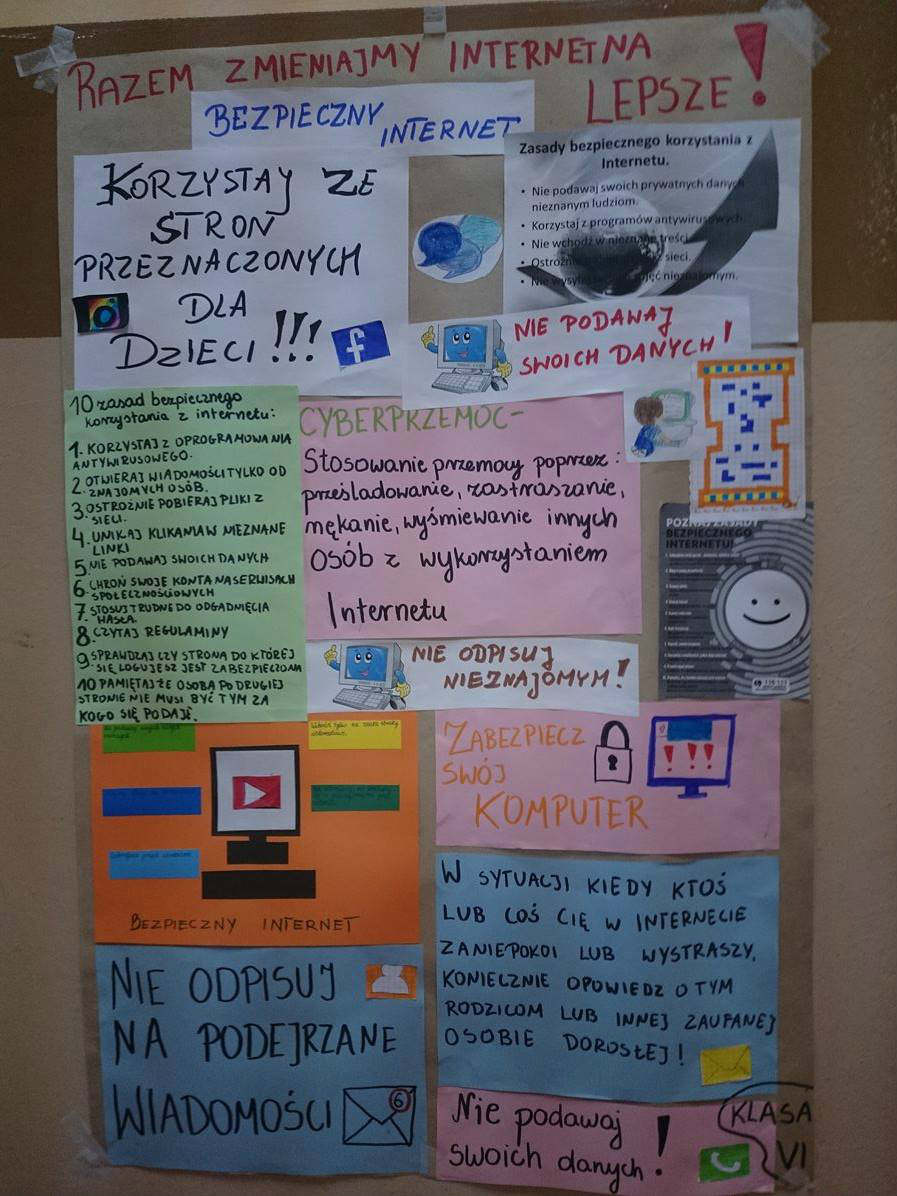 RAZEM ZMIENIAJMY INTERNET NA
LEPSZE!
BEZPIECZNY
INTERNET
KORZYSTAJ ZE
STRON
PRZEZNACZONYCH
DLA
DZIECI!!!
Zasady bezpiecznego korzystania z
Internetu.
• Nie podawaj swoich prywatnych danych
nieznanym ludziom.
• Korzystaj z programów antywirusowych.
• Nie wchodź w nieznane treści
• Ostroż sieci.
• Nie wysy zdjęć nieznajomym.
NIE PODAWAJ
SWOICH DANYCH!
10 zasad bezpiecznego
korzystania z internetu:
1. KORZYSTAJ Z OPROGRAMOWANIA
ANTYWIRUSOWEGO.
2. OTWIERAJ WIADOMOŚCI TYLKO OD
ZNAJOMYCH OSÓB.
3. OSTROŻNIE POBIERAJ PLIKI Z
SIECI.
4. UNIKAJ KLIKANIA W NIEZNANE
LINKI
5. NIE PODAWAJ SWOICH DANYCH
6. CHROŃ SWOJE KONTA NA SERWISACH
SPOŁECZNOŚCIOWYCH
7. STOSUJ TRUDNE DO ODGADNIĘCIA
HASŁA.
8. CZYTAJ REGULAMINY
9. SPRAWDZAJ CZY STRONA DO KTÓREJ
SIĘ LOGUJESZ JEST ZABEZPIECZONA
10 PAMIĘTAJ ŻE OSOBA PO DRUGIEJ
STRONIE NIE MUSI BYĆ TYM ZA
KOGO SIĘ PODAJE.
CYBERPRZEMOC-
Stosowanie przemocy poprzez:
prześladowanie, zastraszanie,
nękanie, wyśmiewanie innych
osób z wykorzystaniem
Internetu
POZNAJ ZASADY
BEZPIECZNEGO
INTERNETU!
NIE ODPISUJ
NIEZNAJOMYM!
ZABEZPIECZ
SWÓJ
KOMPUTER
!!!
BEZPIECZNY INTERNET
W SYTUACJI KIEDY KTOŚ
LUB COŚ CIĘ W INTERNECIE
ZANIEPOKOI LUB WYSTRASZY,
KONIECZNIE OPOWIEDZ O TYM
RODZICOM LUB INNEJ ZAUFANEJ
OSOBIE DOROSŁEJ!
NIE ODPISUJ
NA PODEJRZANE
WIADOMOŚCI
6
Nie podawaj
swoich danych!
KLASA
VI